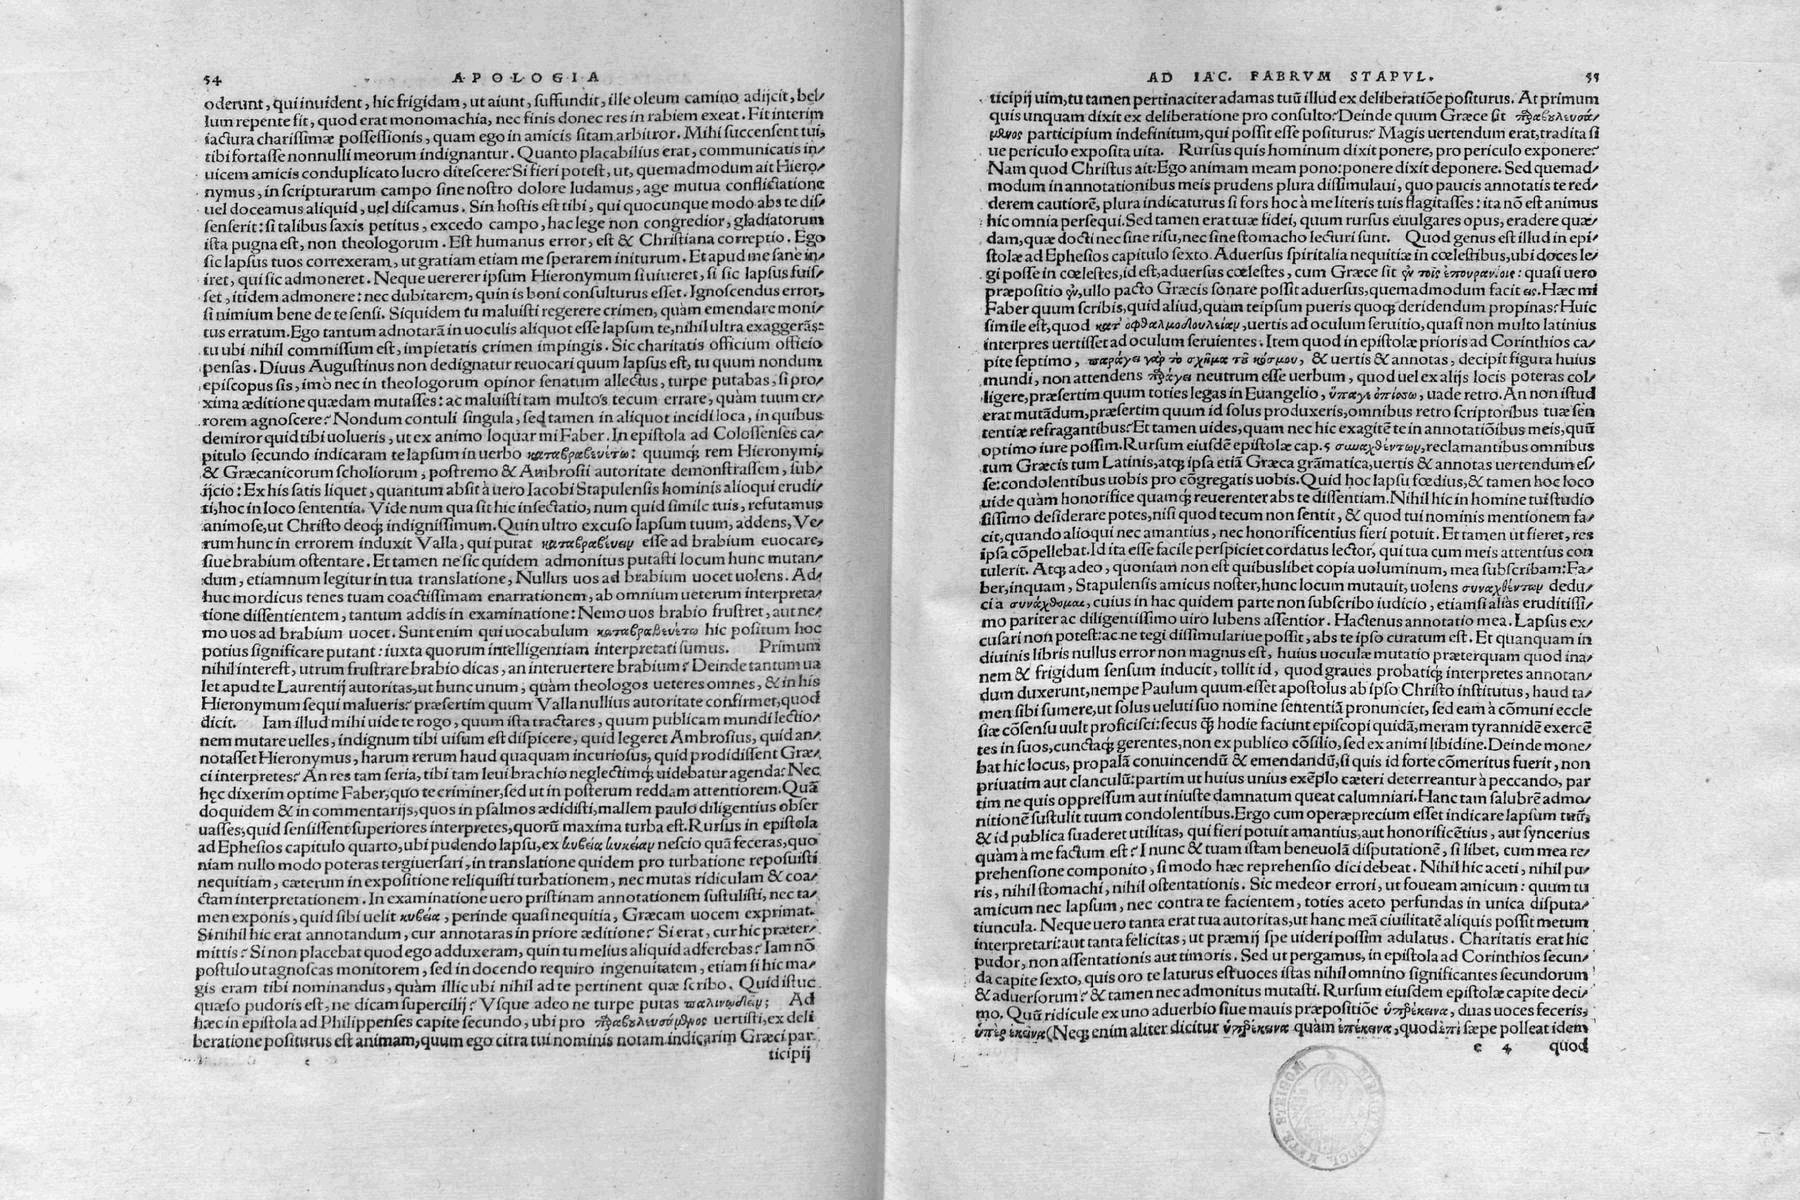 54 APOLOGIA
oderunt, qui inuident, hic frigidam, ut aiunt, suffundit, ille oleum camino adijcit, bel/
lum repente fit, quod erat monomachia, nec finis donec res in rabiem exeat. Fit interim
iactura charissimæ possessionis, quam ego in amicis sitam arbitror. Mihi succensent tui,
tibi fortasse nonnulli meorum indignantur. Quanto placabilius erat, communicatis in/
uicem amicis conduplicato lucro ditescere? Si fieri potest, ut, quemadmodum ait Hiero/
nymus, in scripturarum campo sine nostro dolore ludamus, age mutua conflictatione
uel doceamus aliquid, uel discamus. Sin hostis est tibi, qui quocunque modo abs te dis/
senserit: si talibus saxis petitus, excedo campo, hac lege non congredior, gladiatorum
ista pugna est, non theologorum. Est humanus error, est & Christiana correptio. Ego
sic lapsus tuos correxeram, ut gratiam etiam me sperarem initurum. Et apud me sane in/
iret, qui sic admoneret. Neque uererer ipsum Hieronymum si uiueret, si sic lapsus fuis/
set, itidem admonere: nec dubitarem, quin is boni consulturus esset. Ignoscendus error,
si nimium bene de te sensi. Siquidem tu maluisti regerere crimen, quàm emendare moni/
tus erratum. Ego tantum adnotarã in uoculis aliquot esse lapsum te, nihil ultra exaggerãs:
tu ubi nihil commissum est, impietatis crimen impingis. Sic charitatis officium officio
pensas. Diuus Augustinus non dedignatur reuocari quum lapsus est, tu quum nondum
episcopus sis, imò nec in theologorum opinor senatum allectus, turpe putabas, si pro/
xima æditione quædam mutasses: ac maluisti tam multos tecum errare, quàm tuum er/
rorem agnoscere? Nondum contuli singula, sed tamen in aliquot incidi loca, in quibus
demiror quid tibi uolueris, ut ex animo loquar mi Faber. In epistola ad Colossenses ca/
pitulo secundo indicaram te lapsum in uerbo καταβραβευέτω: quumq́; rem Hieronymi,
& Græcanicorum scholiorum, postremo & Ambrosii autoritate demonstrassem, sub/
ijcio: Ex his satis liquet, quantum absit à uero Iacobi Stapulensis hominis alioqui erudi/
ti, hoc in loco sententia. Vide num qua sit hic insectatio, num quid simile tuis, refutamus
animose, ut Christo deoq́; indignissimum. Quin ultro excuso lapsum tuum, addens, Ve/
rum hunc in errorem induxit Valla, qui putat καταβραβεύειν esse ad brabium euocare,
siue brabium ostentare. Et tamen ne sic quidem admonitus putasti locum hunc mutan/
dum, etiamnum legitur in tua translatione, Nullus uos ad brabium uocet uolens. Ad/
huc mordicus tenes tuam coactissimam enarrationem, ab omnium ueterum interpreta/
tione dissentientem, tantum addis in examinatione: Nemo uos brabio frustret, aut ne/
mo uos ad brabium uocet. Sunt enim qui uocabulum καταβραβευέτω hic positum hoc
potius significare putant: iuxta quorum intelligentiam interpretati sumus. Primum
nihil interest, utrum frustrare brabio dicas, an interuertere brabium? Deinde tantum ua
let apud te Laurentij autoritas, ut hunc unum, quàm theologos ueteres omnes, & in his
Hieronymum sequi malueris? præsertim quum Valla nullius autoritate confirmet, quod
dicit. Iam illud mihi uide te rogo, quum ista tractares, quum publicam mundi lectio/
nem mutare uelles, indignum tibi uisum est dispicere, quid legeret Ambrosius, quid an/
notasset Hieronymus, harum rerum haud quaquam incuriosus, quid prodidissent Græ/
ci interpretes? An res tam seria, tibi tam leui brachio neglectimq́; uidebatur agenda? Nec
hęc dixerim optime Faber, quo te criminer, sed ut in posterum reddam attentiorem. Quã
doquidem & in commentarijs, quos in psalmos ædidisti, mallem paulo diligentius obser
uasses, quid sensissent superiores interpretes, quorũ maxima turba est. Rursus in epistola
ad Ephesios capitulo quarto, ubi pudendo lapsu, ex κυβεία κυκείαν nescio quã feceras, quo
niam nullo modo poteras tergiuersari, in translatione quidem pro turbatione reposuisti
nequitiam, cæterum in expositione reliquisti turbationem, nec mutas ridiculam & coa/
ctam interpretationem. In examinatione uero pristinam annotationem sustulisti, nec ta/
men exponis, quid sibi uelit κυβεία, perinde quasi nequitia, Græcam uocem exprimat.
Si nihil hic erat annotandum, cur annotaras in priore æditione? Si erat, cur hic præter/
mittis? Si non placebat quod ego adduxeram, quin tu melius aliquid adferebas? Iam nõ
postulo ut agnoscas monitorem, sed in docendo requiro ingenuitatem, etiam si hic ma/
gis eram tibi nominandus, quàm illic ubi nihil ad te pertinent quæ scribo. Quid istuc
quæso pudoris est, ne dicam supercilij? Vsque adeo ne turpe putas παλινωδεῖν; Ad
hæc in epistola ad Philippenses capite secundo, ubi pro παραβουλευσάμενος uertisti, ex deli
beratione positurus est animam, quum ego citra tui nominis notam indicarim Græci par
ticipij
AD IAC. FABRVM STAPVL. 55
ticipij uim, tu tamen pertinaciter adamas tuũ illud ex deliberatiõe positurus. At primum
quis unquam dixit ex deliberatione pro consulto? Deinde quum Græce sit παραβουλευσά/
μενος participium indefinitum, qui possit esse positurus? Magis uertendum erat, tradita si
ue periculo exposita uita. Rursus quis hominum dixit ponere, pro periculo exponere?
Nam quod Christus ait: Ego animam meam pono: ponere dixit deponere. Sed quemad/
modum in annotationibus meis prudens plura dissimulaui, quo paucis annotatis te red/
derem cautiorẽ, plura indicaturus si fors hoc à me literis tuis flagitasses: ita nõ est animus
hic omnia persequi. Sed tamen erat tuæ fidei, quum rursus euulgares opus, eradere quæ/
dam, quæ docti nec sine risu, nec sine stomacho lecturi sunt. Quod genus est illud in epi/
stolæ ad Ephesios capitulo sexto. Aduersus spiritalia nequitiæ in cœlestibus, ubi doces le/
gi posse in cœlestes, id est, aduersus cœlestes, cum Græce sit ἐν τοῖς ἐπουρανίοις: quasi uero
præpositio ἐν, ullo pacto Græcis sonare possit aduersus, quemadmodum facit εἰς. Hæc mi
Faber quum scribis, quid aliud, quàm teipsum pueris quoq; deridendum propinas? Huic
simile est, quod κατ' ὀφθαλμοδουλείαν, uertis ad oculum seruitio, quasi non multo latinius
interpres uertisset ad oculum seruientes. Item quod in epistolæ prioris ad Corinthios ca/
pite septimo, παράγει γὰρ τὸ σχῆμα τοῦ κόσμου, & uertis & annotas, decipit figura huius
mundi, non attendens παράγει neutrum esse uerbum, quod uel ex alijs locis poteras col/
ligere, præsertim quum toties legas in Euangelio, ὕπαγε ὀπίσω, uade retro. An non istud
erat mutãdum, præsertim quum id solus produxeris, omnibus retro scriptoribus tuæ sen
tentiæ refragantibus? Et tamen uides, quam nec hic exagitẽ te in annotatiõibus meis, quũ
optimo iure possim. Rursum eiusdẽ epistolæ cap. 5 συναχθέντων, reclamantibus omnibus
tum Græcis tum Latinis, atq; ipsa etiã Græca grãmatica, uertis & annotas uertendum es/
se: condolentibus uobis pro cõgregatis uobis. Quid hoc lapsu fœdius, & tamen hoc loco
uide quàm honorifice quamq́; reuerenter abs te dissentiam. Nihil hic in homine tui studio
sissimo desiderare potes, nisi quod tecum non sentit, & quod tui nominis mentionem fa/
cit, quando alioqui nec amantius, nec honorificentius fieri potuit. Et tamen ut fieret, res
ipsa cõpellebat. Id ita esse facile perspiciet cordatus lector, qui tua cum meis attentius con
tulerit. Atq; adeo, quoniam non est quibuslibet copia uoluminum, mea subscribam: Fa/
ber, inquam, Stapulensis amicus noster, hunc locum mutauit, uolens συναχθέντων dedu/
ci a συνάχθομαι, cuius in hac quidem parte non subscribo iudicio, etiamsi aliàs eruditissi/
mo pariter ac diligentissimo uiro lubens assentior. Hactenus annotatio mea. Lapsus ex/
cusari non potest: ac ne tegi dissimulariue possit, abs te ipso curatum est. Et quanquam in
diuinis libris nullus error non magnus est, huius uoculæ mutatio præterquam quod ina/
nem & frigidum sensum inducit, tollit id, quod graues probatiq́; interpretes annotan/
dum duxerunt, nempe Paulum quum esset apostolus ab ipso Christo institutus, haud ta/
men sibi sumere, ut solus ueluti suo nomine sententiã pronunciet, sed eam à cõmuni eccle
siæ cõsensu uult proficisci: secus q̃ hodie faciunt episcopi quidã, meram tyrannidẽ exercẽ
tes in suos, cunctaq́; gerentes, non ex publico cõsilio, sed ex animi libidine. Deinde mone/
bat hic locus, propalã conuincendũ & emendandũ, si quis id forte cõmeritus fuerit, non
priuatim aut clanculũ: partim ut huius unius exẽplo cæteri deterreantur à peccando, par
tim ne quis oppressum aut iniuste damnatum queat calumniari. Hanc tam salubrẽ admo/
nitionẽ sustulit tuum condolentibus. Ergo cum operæprecium esset indicare lapsum tuũ,
& id publica suaderet utilitas, qui fieri potuit amantius, aut honorificẽtius, aut syncerius
quàm à me factum est? I nunc & tuam istam beneuolã disputationẽ, si libet, cum mea re/
prehensione componito, si modo hæc reprehensio dici debeat. Nihil hic aceti, nihil pu/
ris, nihil stomachi, nihil ostentationis. Sic medeor errori, ut foueam amicum: quum tu
amicum nec lapsum, nec contra te facientem, toties aceto perfundas in unica disputa/
tiuncula. Neque uero tanta erat tua autoritas, ut hanc meã ciuilitatẽ aliquis possit metum
interpretari: aut tanta felicitas, ut præmij spe uideri possim adulatus. Charitatis erat hic
pudor, non assentationis aut timoris. Sed ut pergamus, in epistola ad Corinthios secun/
da capite sexto, quis oro te laturus est uoces istas nihil omnino significantes secundorum
& aduersorum? & tamen nec admonitus mutasti. Rursum eiusdem epistolæ capite deci/
mo. Quã ridicule ex uno aduerbio siue mauis præpositiõe ὑπερέκεινα, duas uoces feceris,
ὑπὲρ ἐκεῖνα (Neq; enim aliter dicitur ὑπερέκεινα quàm ἐπέκεινα, quod ἐπὶ sæpe polleat idem
e 4 quod